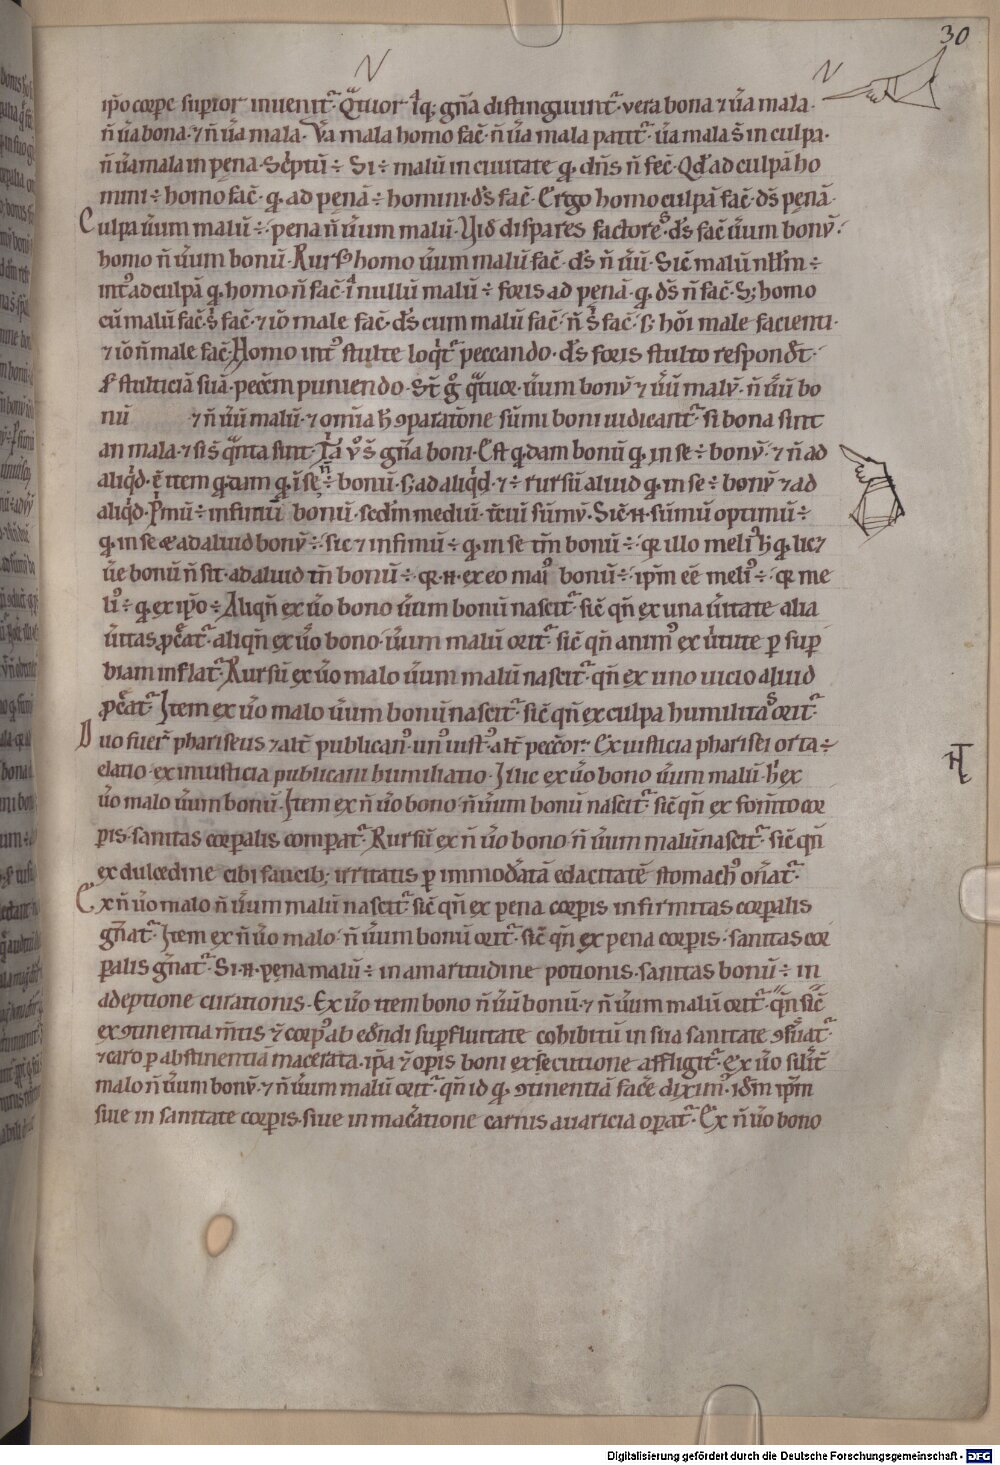 30
N N
ip̄o corpe superior inuenit᷑. Qͣtuor igͥtq; gn̄a distinguunt᷑. vera bona ⁊ ūa mala.
n̄ ūa bona. ⁊ n̄ ūa mala. Va mala homo fac̄. n̄ ūa mala patit᷑. ūa mala s̄ in culpa.
n̄ ūa mala in pena. Sc̄ptū ÷ Si ÷ malū in ciuitate qd̛ dn̄s n̄ fec̄. Qd̛ ad culpā ho
mini ÷ homo fac̄. qd̛ ad penā ÷ homini. ds̄ fac̄. Ergo homo culpā fac̄. ds̄ penā.
Culpa ūum malū ÷. pena n̄ ūum malū. Vid̄ dispares factores. ds̄ fac̄ ūum bonū.
homo n̄ ūum bonū. Rursꝰ homo ūum malū fac̄. ds̄ n̄ ūū. Sic̄ malū nll̄m ÷
intꝰ ad culpā qd̛ homo n̄ fac̄. ı̄ nullū malū ÷ foris ad penā. qd̛ ds̄ n̄ fac̄. S; homo
cū malū fac̄. s̄ fac̄. ⁊ iō male fac̄. ds̄ cum malū fac̄. n̄ s̄ fac̄. s; hōi male facienti.
⁊ iō n̄ male fac̄. Homo intꝰ stulte loqͥt᷑ peccando. ds̄ foris stulto respondͭ.
s̄ stulticiā suā. pecc̄m puniendo. St̄ gͦ qͣtuor. ūum bonū ⁊ ūū malū. n̄ ūū bo
nū ⁊ n̄ ūū malū. ⁊ om̄ia h̄ ꝯparatōne sūmi boni iudicant᷑. si bona sint
an mala. ⁊ si s̄ qͣnta sint. Tͥa vͦ s̄ gn̄a boni. Est qd̛dam bonū qd̛ in se ÷ bonū. ⁊ n̄ ad
aliqͥd. ē item qd̛dam qd̛ ı̄ se n̄ ÷ bonū. s; ad aliqͥd. ⁊ ÷ rursū aliud qd̛ in se ÷ bonū ⁊ ad
aliqͥd. Pͥmū ÷ infimū bonū. sec̄dm mediū. t̄ciū sūmū. Sic̄ n̄. sūmū optimū ÷
qd̛ in se ⁊ ad aliud bonū ÷. sic ⁊ infimū ÷ qd̛ in se tm̄ bonū ÷. qr illo meliꝰ h̄ qd̛ lic⁊
ūe bonū n̄ sit. ad aliud tn̄ bonū ÷. qr n̄. ex eo maiꝰ bonū ÷. ip̄m eē meliꝰ ÷. qr me
liꝰ ÷ qd̛ ex ip̄o ÷. Aliqn̄ ex ūo bono ūum bonū nascit᷑. sic̄ qn̄ ex una ūitate alia
ūitas p̱creat᷑. aliqn̄ ex ūo bono. ūum malū orit᷑. sic̄ qn̄ animꝰ ex ūtute ꝑ suꝑ
biam inflat᷑. Rursū ex ūo malo ūum malū nascit᷑. qn̄ ex uno uicio aliud
p̱creat᷑. Item ex ūo malo ūum bonū nascit᷑. sic̄ qn̄ ex culpa humilitas orit᷑.
Duo fuer̄ phariseus ⁊ alt̄ publicanꝰ. unꝰ iustꝰ. alt̄ pecc̄or. Ex iusticia pharisei orta ÷
elatio. ex iniusticia publicani humiliatio. Illic ex ūo bono ūum malū. hͥ ex
ūo malo ūum bonū. Item ex n̄ ūo bono. n̄ ūum bonū nascit᷑. sic̄ qn̄ ex fom̄to cor
ꝑis. sanitas corꝑalis comparat᷑. Rursū ex n̄ ūo bono. n̄ ūum malū nascit᷑. sic̄ qn̄
ex dulcedine cibi faucib; irritatis ꝑ immod̄atā edacitatē stomachꝰ on̄at᷑.
Ex n̄ ūo malo n̄ ūum malū nascit᷑. sic̄ qn̄ ex pena corꝑis infirmitas corꝑalis
gn̄at᷑. Item ex n̄ ūo malo. n̄ ūum bonū orit᷑. sic̄ qn̄ ex pena corꝑis. sanitas cor
ꝑalis gn̄at᷑. Si n̄. pena malū ÷ in amaritudine potionis. sanitas bonū ÷ in
adeptione curationis. Ex ūo item bono n̄ ūū bonū. ⁊ n̄ ūum malū orit᷑. qn̄ sic̄
ex ꝯtinentia m̄tis ⁊ corpꝰ ab edendi suꝑfluitate cohibitū in sua sanitate ꝯs̄uat᷑.
⁊ caro ꝑ abstinentiā macerata. ip̄a ⁊ opis boni exsecutione affligit᷑. Ex ūo silit̄
malo n̄ ūum bonū. ⁊ n̄ ūum malū orit᷑. qn̄ id qd̛ ꝯtinentiā fac̄e diximꝰ. idm̄ ip̄m
siue in sanitate corꝑis. siue in mac̄atione carnis auaricia oꝑat᷑. Ex n̄ ūo bono
Digitalisierung gefördert durch die Deutsche Forschungsgemeinschaft - DFG